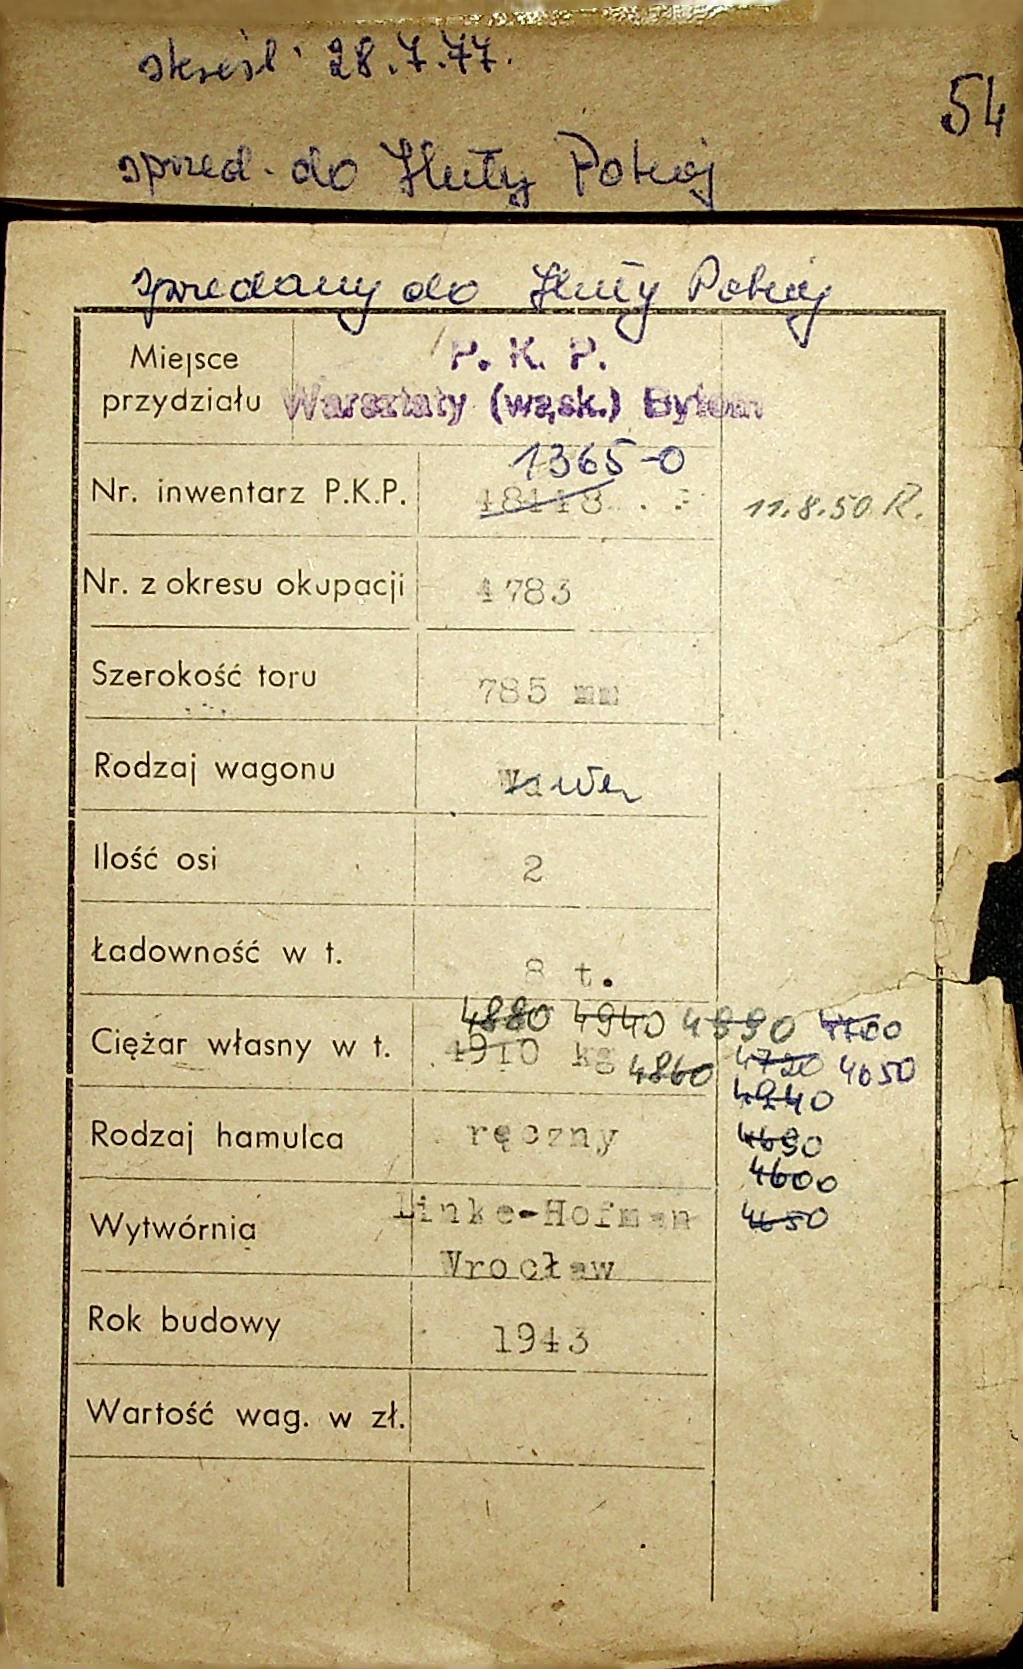 skreśl. 28.7.77.
54
sprzed. do Huty Pokój
sprzedany do Huty Pokój
Miejsce przydziału
P. K. P.
Warsztaty (wąsk.) Bytom
1365-0
Nr. inwentarz P.K.P. 18118 11.8.50 R.
Nr. z okresu okupacji 4783
Szerokość toru 785 mm
Rodzaj wagonu Wa
Ilość osi 2
Ładowność w t. 8 t.
4880 4940 4990
Ciężar własny w t. 4910 kg 4860 4720 4650
4940
Rodzaj hamulca ręczny 4690
4600
Linke-Hofman 4650
Wytwórnia
Wrocław
Rok budowy 1943
Wartość wag. w zł.